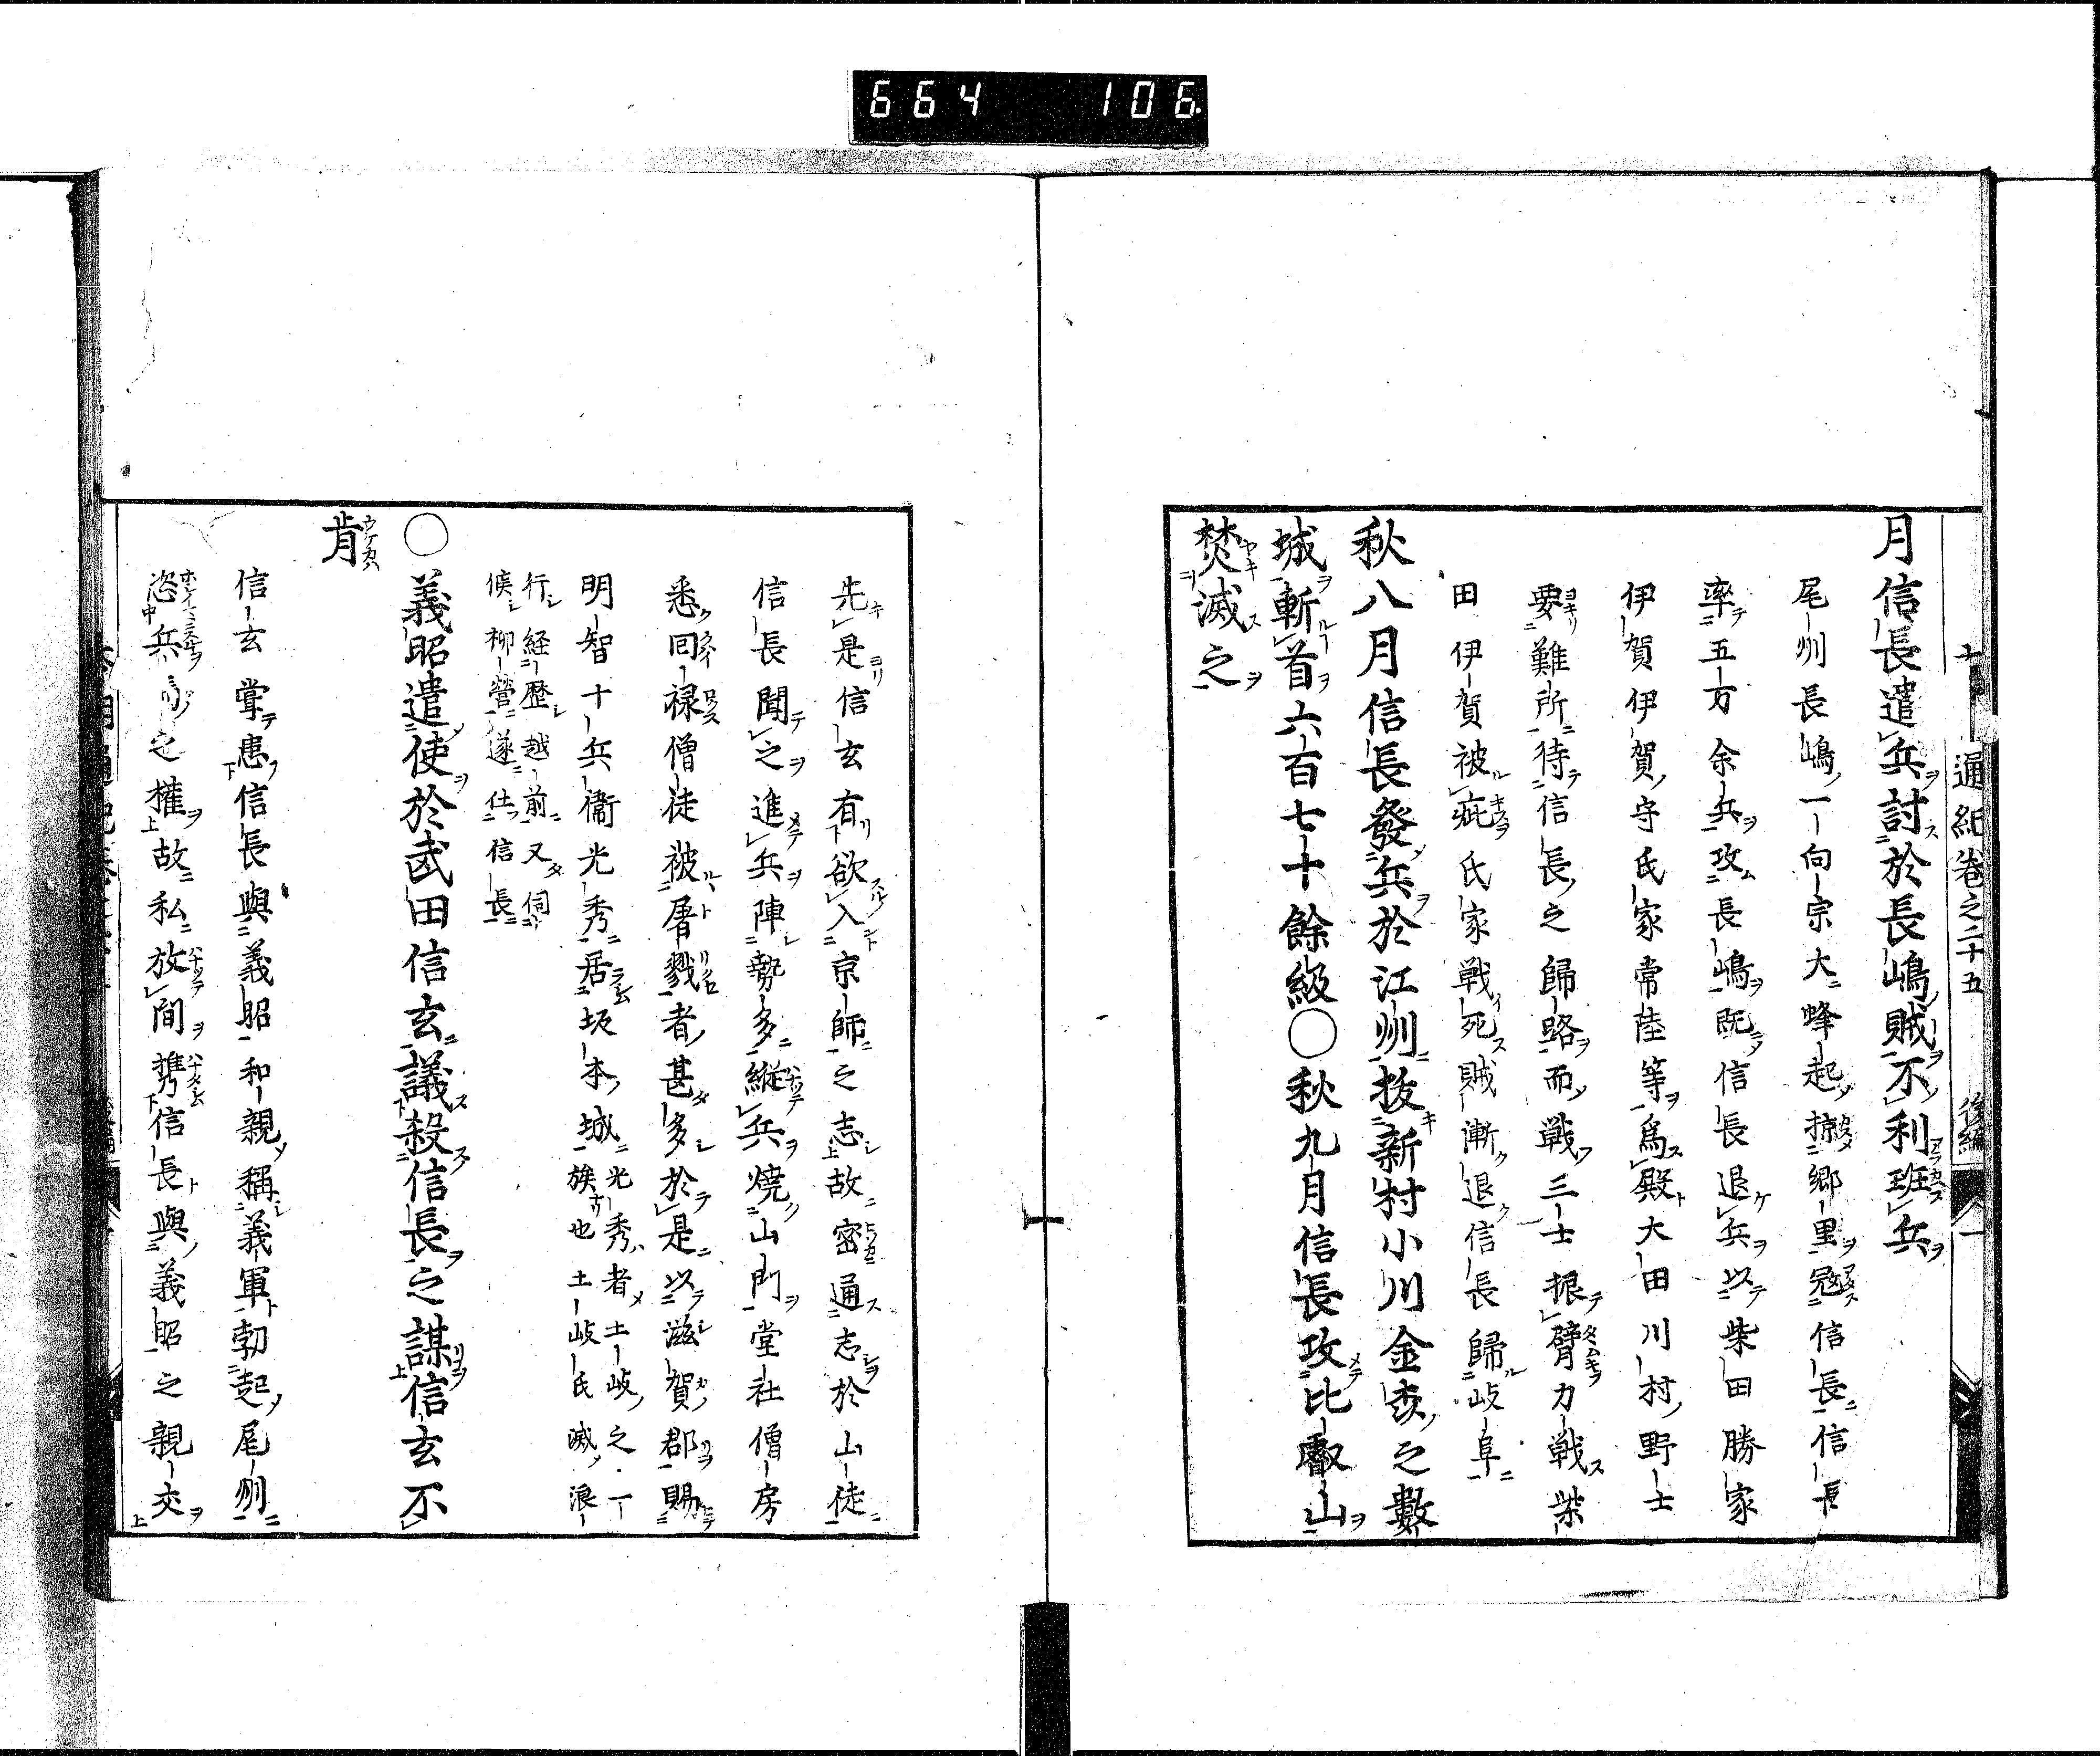 664 106
通紀卷之二十五 後編
月信長遣兵討於長嶋賊不利班兵
尾州長嶋一向宗大蜂起掠郷里冦信長信長
率五万余兵攻長嶋既信長退兵以柴田勝家
伊賀伊賀守氏家常陸等爲殿大田川村野士
要難所待信長之歸路而戦三士振臂力戦柴
田伊賀被疵氏家戦死賊漸退信長歸岐阜
秋八月信長發兵於江州拔新村小川金森之數
城斬首六百七十餘級○秋九月信長攻比叡山
焚滅之
先是信玄有欲入京師之志故密通志於山徒
信長聞之進兵陣勢多縱兵燒山門堂社僧房
悉回禄僧徒被屠戮者甚多於是以滋賀郡賜
明智十兵衞光秀居坂本城光秀者土岐之一
族也土岐氏滅浪
行経歴越前又伺
候柳營遂仕信長
○義昭遣使於武田信玄議殺信長之謀信玄不
肯
信玄掌患信長與義昭和親稱義軍勃起尾州
恣兵之權故私放間携信長與義昭之親交